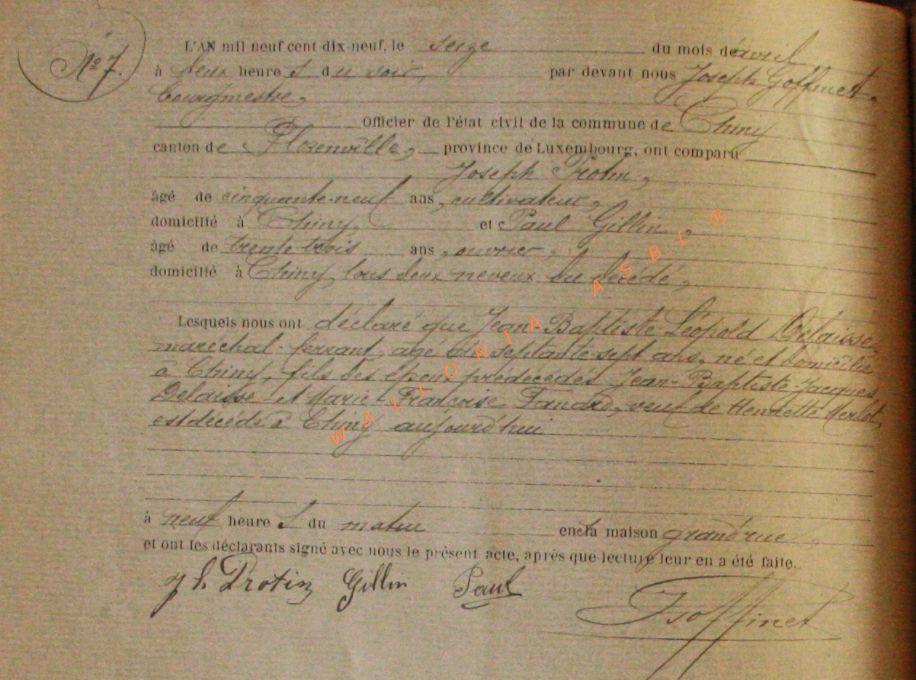 N° 7.
L'AN mil neuf cent dix-neuf, le seize du mois d'avril
à deux heures du soir, par devant nous Joseph Goffinet,
bourgmestre,
Officier de l'état civil de la commune de Chiny
canton de Florenville, province de Luxembourg, ont comparu
Joseph Protin,
âgé de cinquante-neuf ans, cultivateur,
domicilié à Chiny, et Paul Gillin,
âgé de trente trois ans, ouvrier,
domicilié à Chiny, tous deux neveux du décédé,
Lesquels nous ont déclaré que Jean-Baptiste Léopold Delaisse,
maréchal-ferrant, âgé de septante-sept ans, né et domicilié
à Chiny, fils des époux prédécédés Jean-Baptiste-Jacques
Delaisse et Marie Françoise veuf de Henriette
est décédé à Chiny aujourd'hui
à neuf heures du matin en la maison grand'rue,
et ont les déclarants signé avec nous le présent acte, après que lecture leur en a été faite.
Jh Protin Gillin Paul
J Goffinet
WALLONIA ASBL ®